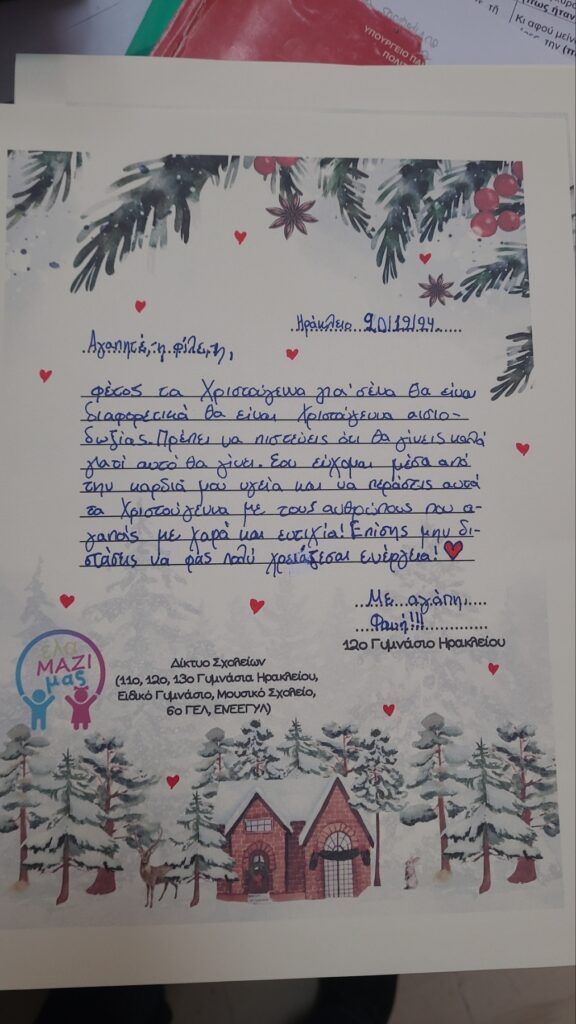 ΥΠΟΥΡΓΕΙΟ ΠΑ
ΠΟΛΙΤ
πως ήταν
Κι αφού μείν
την (π
Ηράκλειο 20/12/24
Αγαπητέ, -η φίλε, -η,
φέτος τα Χριστούγεννα για σένα θα είναι
διαφορετικά θα είναι Χριστούγεννα αισιο-
δωξίας. Πρέπει να πιστεύεις ότι θα γίνεις καλά
γιατί αυτό θα γίνει. Σου εύχομαι μέσα από
την καρδιά μου υγεία και να περάσεις αυτά
τα Χριστούγεννα με τους ανθρώπους που α-
γαπάς με χαρά και ευτιχία! Επίσης μην δι-
στάσεις να φας πολύ χρειάζεσαι ενέργεια!
Με αγάπη,
Φανή!!!
12ο Γυμνάσιο Ηρακλείου
έλα
ΜΑΖΙ
μας
Δίκτυο Σχολείων
(11ο, 12ο, 13ο Γυμνάσια Ηρακλείου,
Ειδικό Γυμνάσιο, Μουσικό Σχολείο,
6ο ΓΕΛ, ΕΝΕΕΓΥΛ)